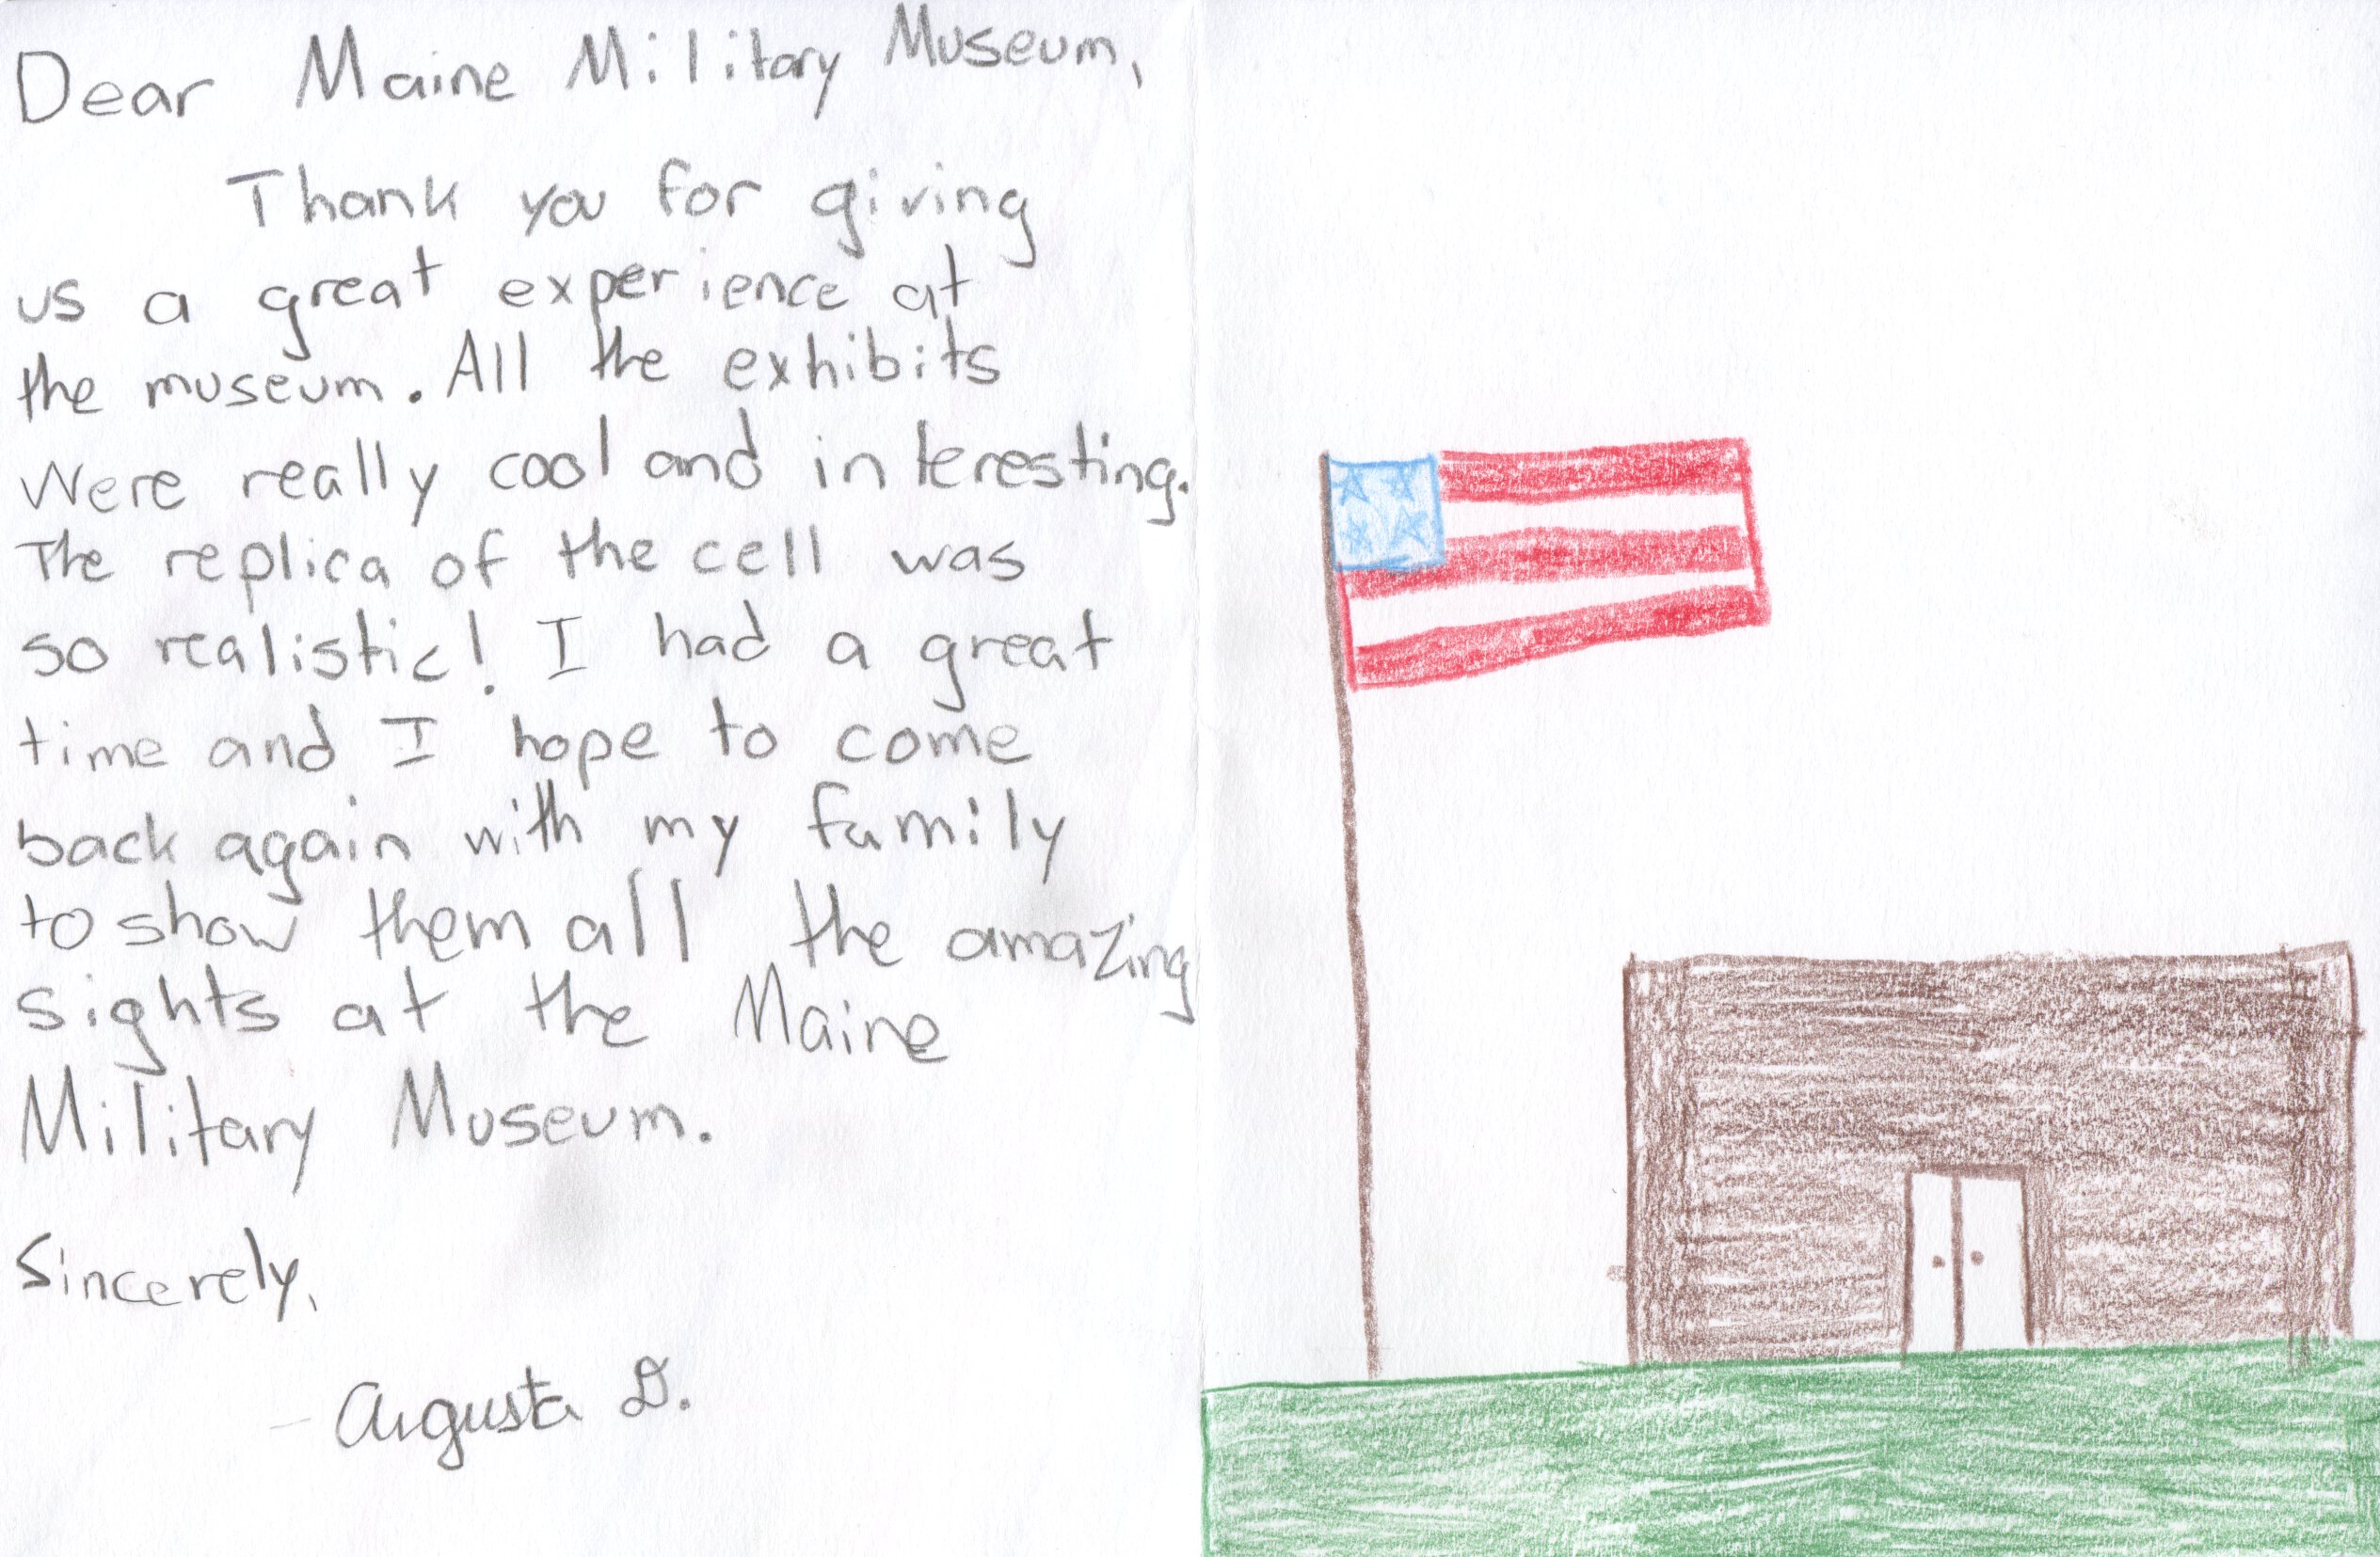 Dear Maine Military Museum,
Thank you for giving
us a great experience at
the museum. All the exhibits
Were really cool and interesting.
The replica of the cell was
so realistic! I had a great
time and I hope to come
back again with my family
to show them all the amazing
sights at the Maine
Military Museum.
Sincerely,
- Augusta D.